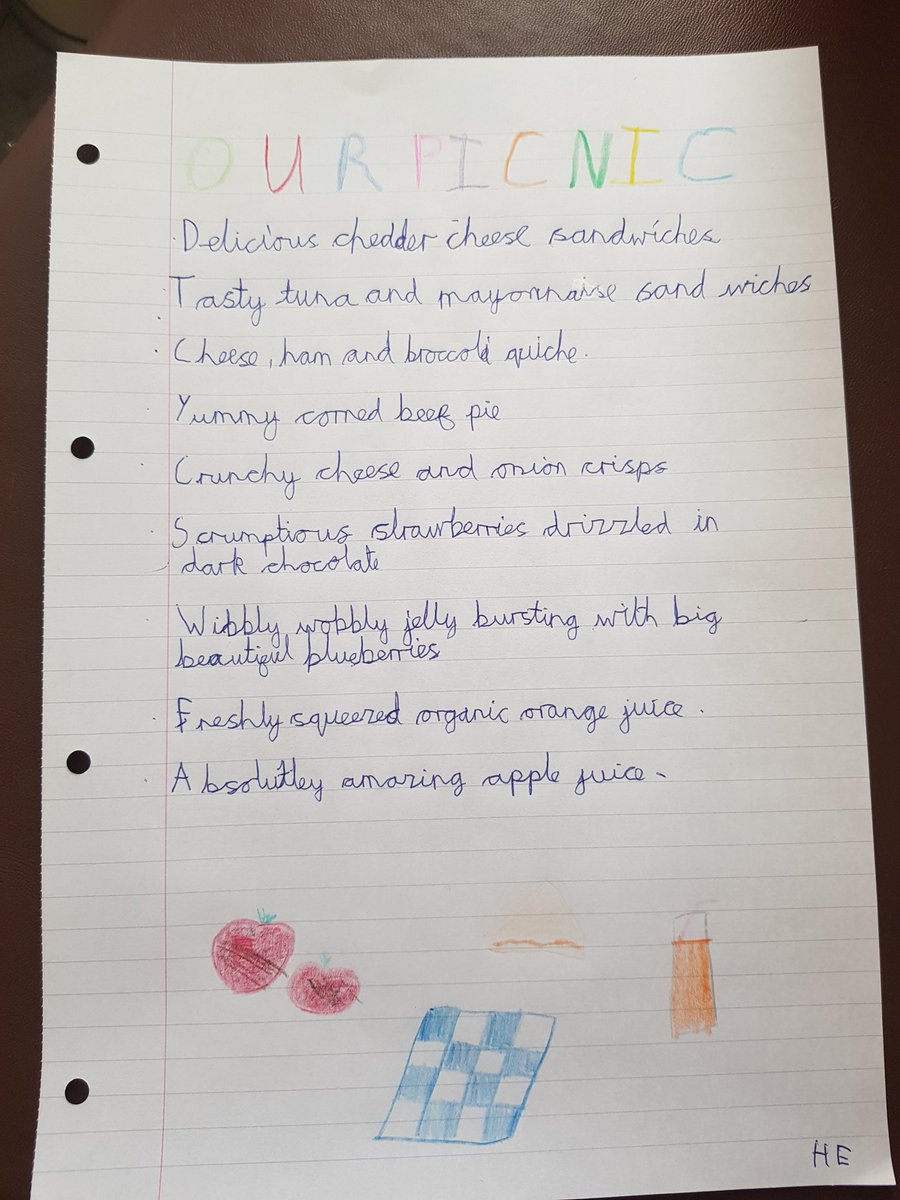 OUR PICNIC
Delicious chedder cheese sandwiches
Tasty tuna and mayonnaise sandwiches
Cheese, ham and broccoli quiche.
Yummy corned beef pie
Crunchy cheese and onion crisps
Scrumptious strawberries drizzled in
dark chocolate
Wibbly wobbly jelly bursting with big
beautiful blueberries
Freshly squeezed organic orange juice.
Absolutley amazing apple juice.
HE